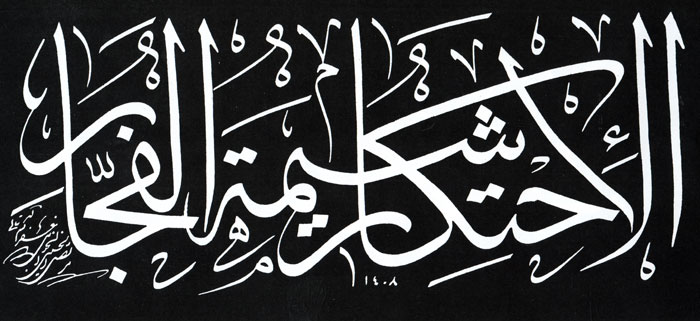 الإحتكار شيمة الفجّار
١٤٠٨